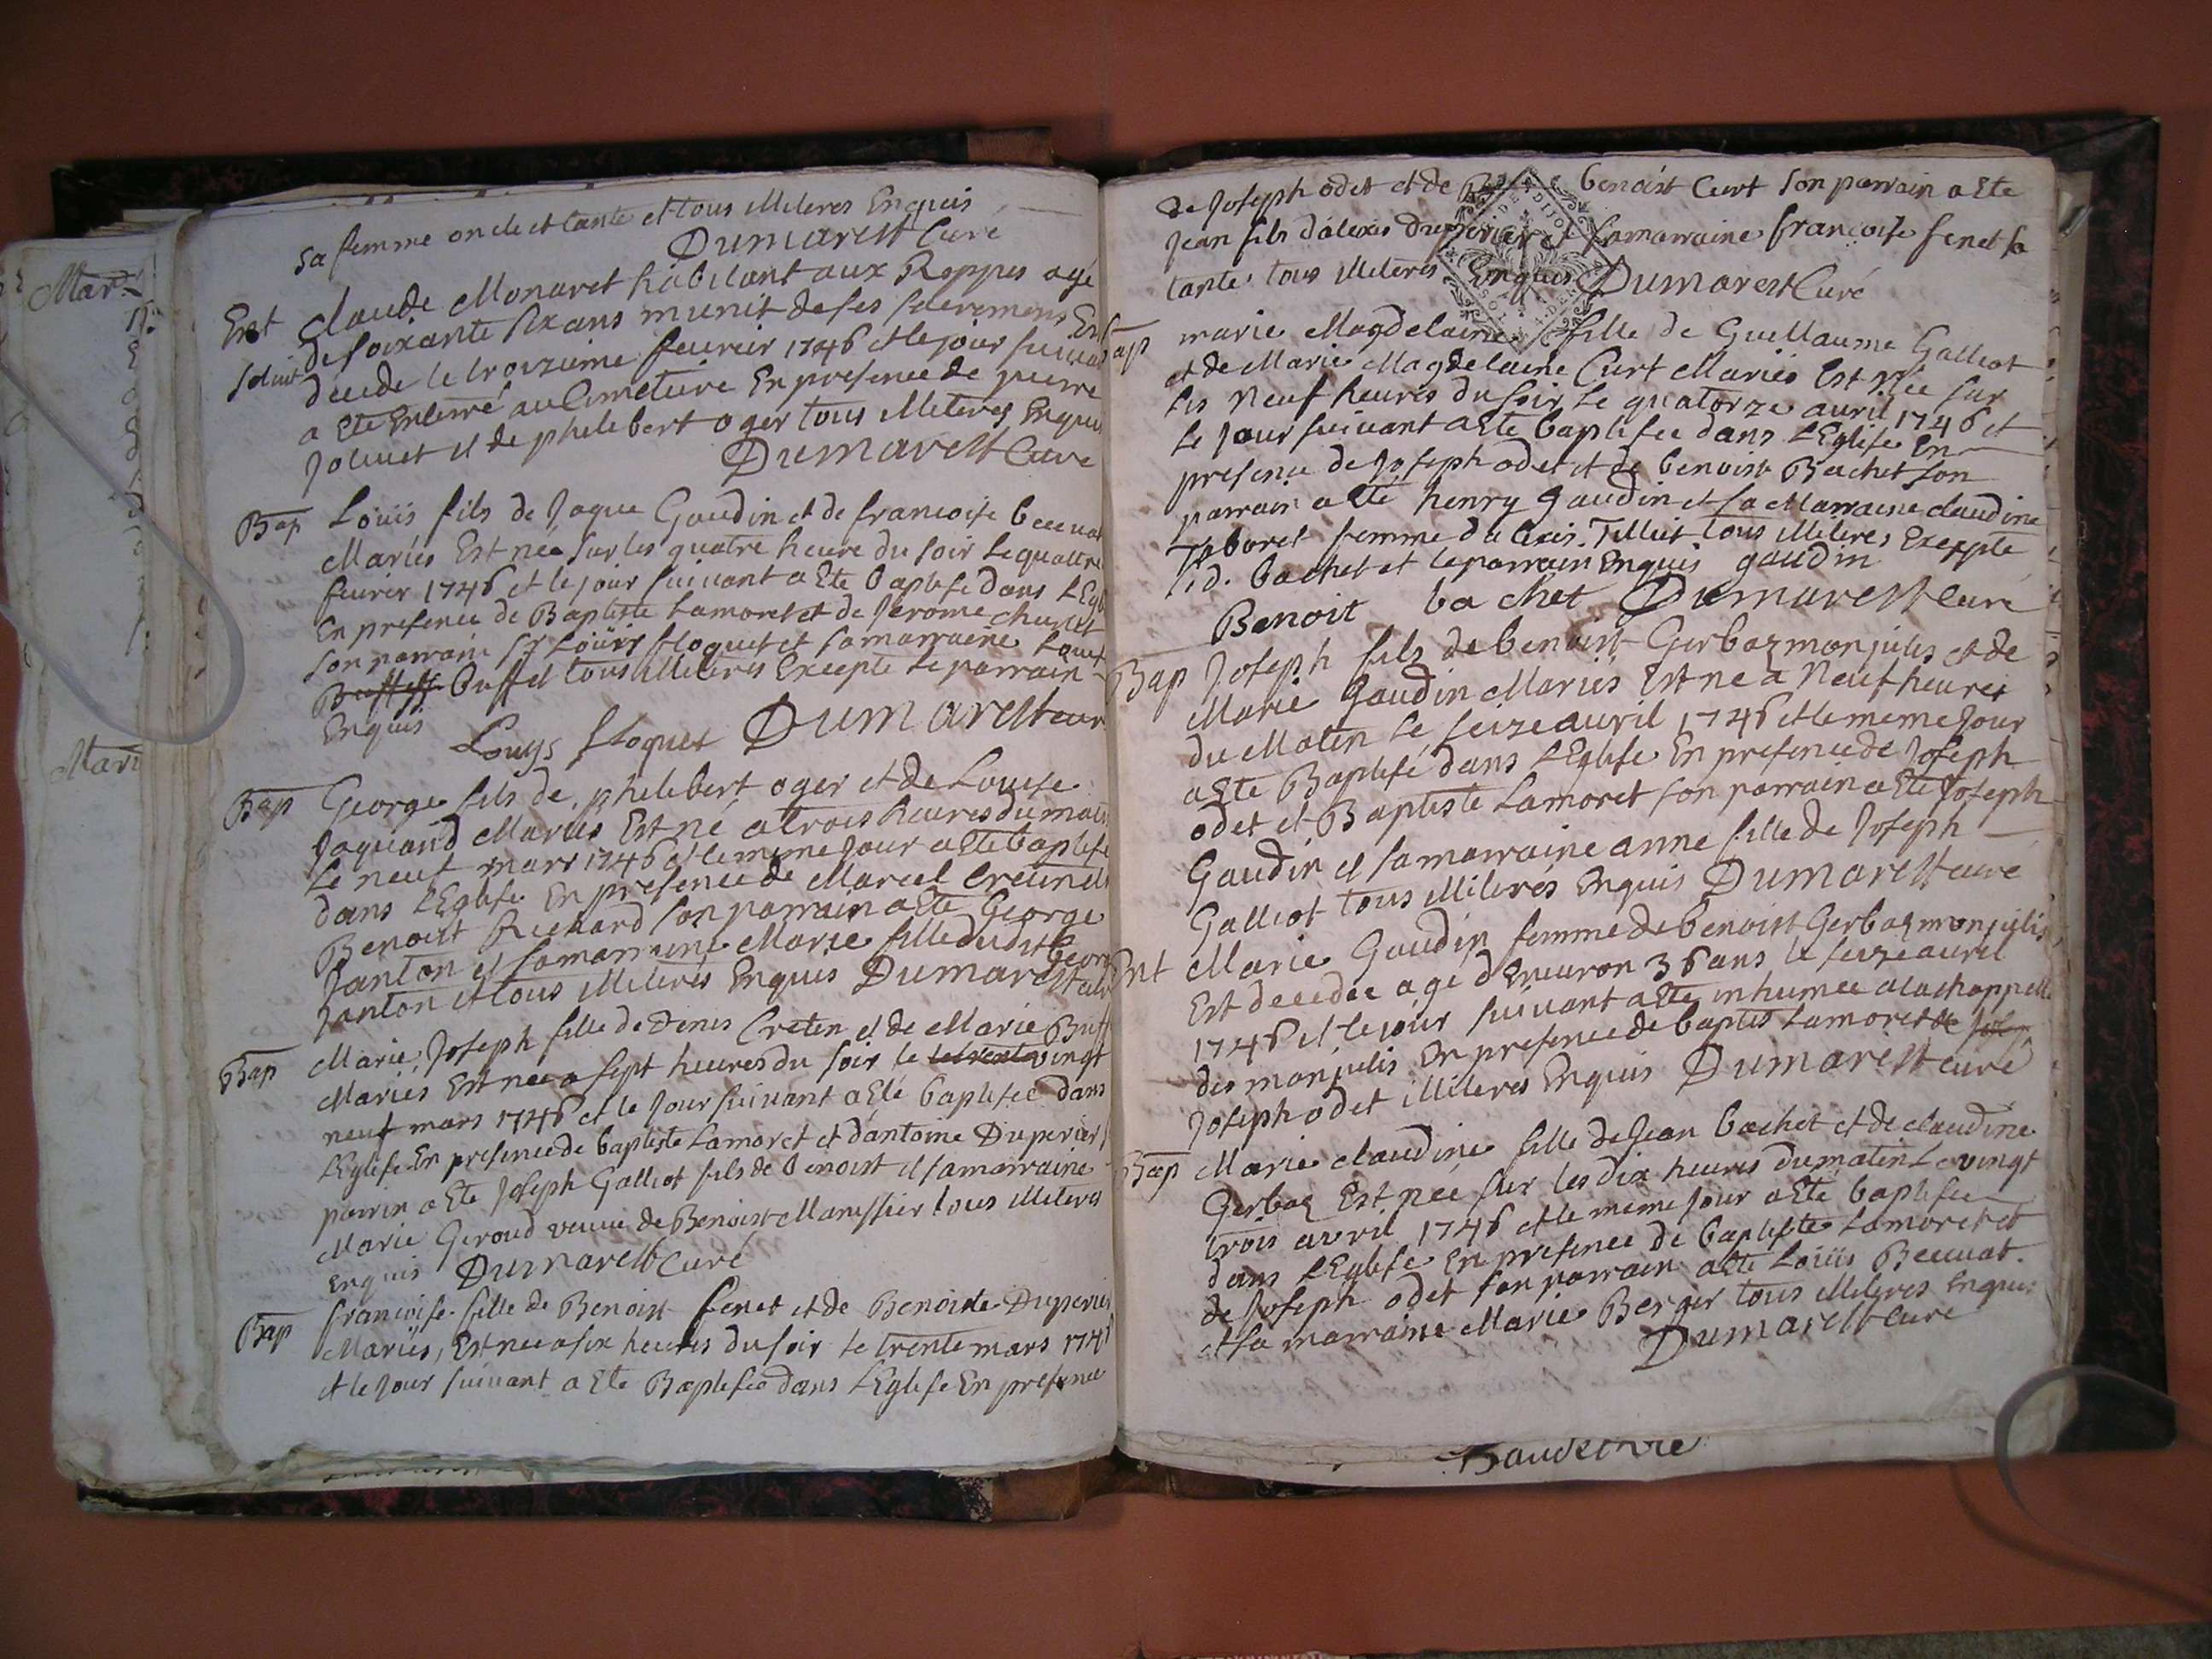 Sa femme oncle et tante et tous illiteres Enquis
Dumarest Curé
Ent Claude Monaret habitant aux Reppes agé
solut de soixante six ans munit de ses sacremens Est
décédé le troizieme feurier 1746 et le jour suiuant
a Eté Enterré au Cimetiere En presence de pierre
Joliuet et de phelebert oger tous illiteres Enquis
Dumarest Curé
Bap Loüis fils de Jaque Gaudin et de francoise
Mariés Est née sur les quatre heure du soir le quattre
feurier 1746 et le jour suiuant a Eté baptisé dans L'Egl
En presence de Baptiste Lamoret et de Jerome
son parrain Sr Loüis floquet et sa marraine
Buffet tous illiteres Excepté le parrain
Enquis
Louys floquet Dumarest cur
Bap George fils de phelebert oger et de Louise
Jaquand Mariés Est né a trois heures du matin
Le neuf mars 1746 et le meme Jour a Eté baptisé
dans L'Eglise En presence de Marcel Cretin et
Benoist Richard son parrain a Eté George
Janton et sa marraine Marie fille dudit George
Janton et tous illiterés Enquis Dumarest
Bap Marie Joseph fille de Denis Cretin et de Marie Buff
Mariés Est née a sept heures du soir le vingt
neuf mars 1746 et le Jour suiuant a Eté baptisée dans
L'Eglise En presence de baptiste Lamoret et d'antoine Duperier
parrin a Eté Joseph Galliot fils de benoist et sa marraine
Marie Giroud veuue de Benoist Manissier tous illiteres
Enquis Dumarest Curé
Bap francoise fille de Benoist fenet et de Benoiste Duperier
Mariés, Est née a six heures du soir le trente mars 1746
et le Jour suiuant a Eté Baptisée dans L'Eglise En presence
de Joseph odet et de benoist Curt son parrain a Eté
Jean fils d'alexis Duperier et sa marraine francoise fenet sa
tante tous illiteres Enquis Dumarest Curé
ap marie Magdelaine fille de Guillaume Galliot
et de Marie Magdelaine Curt Mariés Est née sur
les Neuf heures du soir Le quatorze auril 1746 et
le Jour suiuant a Eté baptisée dans L'Eglise En
presence de Joseph odet et de benoist Bachet son
parrain a Eté henry gaudin et sa Marraine claudine
Taboret femme d'alexis Tilliet tous illiteres Excepté
led. bachet et le parrain Enquis gaudin
Benoit bachet Dumarest Curé
Bap Joseph fils de benoist Gerbaz monjulis et de
Marie Gaudin Mariés Est né a Neuf heures
du Matin Le seize auril 1746 et le meme Jour
a Eté Baptisé dans L'Eglise En presence de Joseph
odet et Baptiste Lamoret son parrain a Eté Joseph
Gaudin et sa marraine anne fille de Joseph
Galliot tous illiterés Enquis Dumarest curé
Ent Marie Gaudin femme de benoist Gerbaz monjulis
Est decedée agé d'Enuiron 36 ans le seize auril
1746 et le jour suiuant a Eté inhumée a la chappelle
des monjulis En presence de baptis Lamoret
Joseph odet illiteres Enquis Dumarest curé
Bap Marie claudine fille de Jean bachet et de claudine
Gerbaz Est née sur les dix heures du matin Le vingt
trois avril 1746 et le meme Jour a Eté baptisée
dans L'Eglise En presence de baptiste Lamoret et
de Joseph odet son parrain a Eté Loüis Beccuat
et sa marraine Marie Berger tous illiteres Enquis
Dumarest Curé